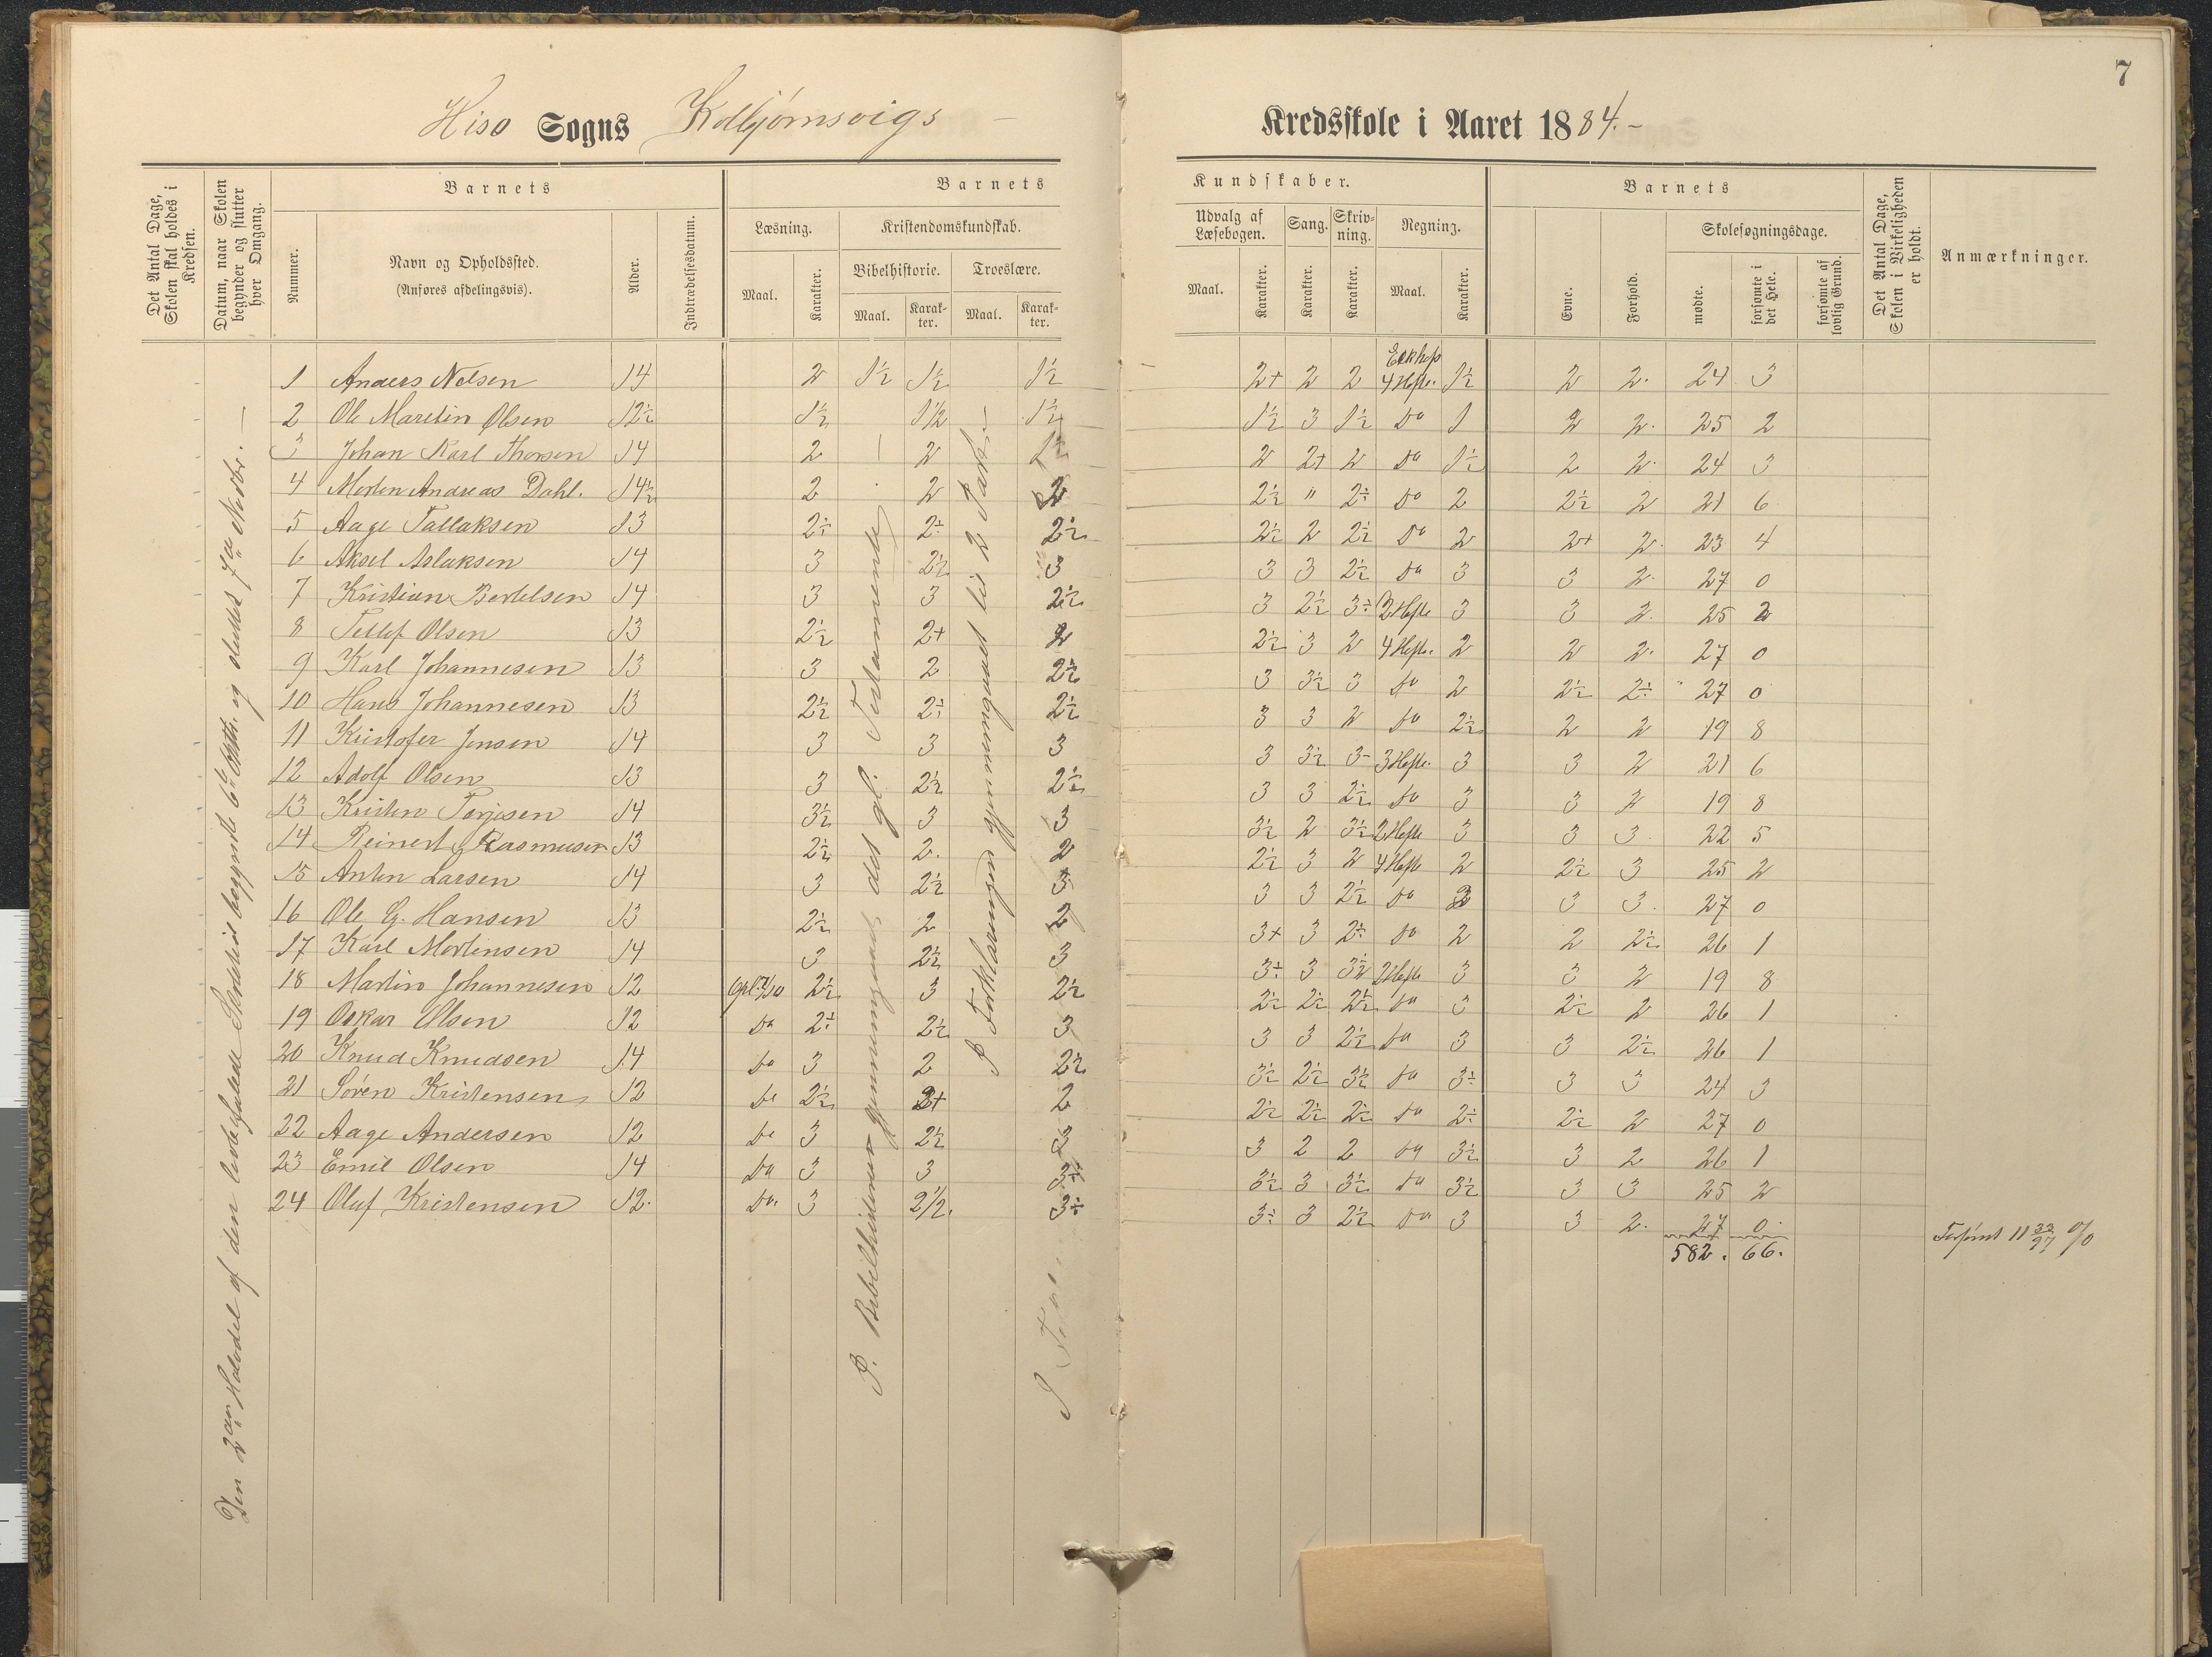 7
Hisø Sogns Kolbjørnsvigs Kredsskole i Aaret 1884.
Det Antal Dage, Skolen skal holdes i Kredsen.
Datum, naar Skolen begynder og slutter hver Omgang.
Barnets
Nummer.
Navn og Opholdssted.
(Anføres afdelingsvis).
Alder.
Indtrædelsesdatum.
Barnets Kundskaber.
Læsning.
Maal. Karakter.
Kristendomskundskab.
Bibelhistorie. Troeslære.
Maal. Karakter. Maal. Karakter.
Udvalg af Læsebogen.
Maal. Karakter.
Sang. Karakter.
Skrivning. Karakter.
Regning.
Maal. Karakter.
Barnets
Evne. Forhold.
Skolesøgningsdage.
mødte. forsømte i det Hele. forsømte af lovlig Grund.
Det Antal Dage, Skolen i Virkeligheden er holdt.
Anmærkninger.
1 Anders Nelsen 14 2 1½ 1½ 1½ 2+ 2 2 4 Hefte. 1½ 2 2. 24 3
2 Ole Martin Olsen 12½ 1½ 1½ 1½ 1½ 3 1½ Do 1 2 2. 25 2
3 Johan Karl Thorsen 14 2 2 1½ 2 2+ 2 Do 1½ 2 2. 24 3
4 Morten Andreas Dahl. 14½ 2 2 2 2½ " 2÷ Do 2 2½ 2 21 6
5 Aage Tallaksen 13 2÷ 2÷ 2½ 2½ 2 2½ Do 2 2+ 2. 23 4
6 Aksel Aslaksen 14 3 2½ 3 3 3 2½ Do 3 3 2. 27 0
7 Kristian Bertelsen 14 3 3 2½ 3 2½ 3÷ 2 Hefte 3 3 2. 25 2
8 Tellef Olsen 13 2½ 2+ 2 2½ 3 2 4 Hefte. 2 2 2. 27 0
9 Karl Johannesen 13 3 2 2½ 3 3½ 3 Do 2 2½ 2÷ 27 0
10 Hans Johannesen 13 2½ 2÷ 2½ 3 3 2 Do 2½ 2 2 19 8
11 Kristofer Jensen 14 3 3 3 3 3½ 3- 3 Hefte. 3 3 2 21 6
12 Adolf Olsen 13 3 2½ 2½ 3 3 2½ Do 3 3 2 19 8
13 Kristen Terjesen 14 3½ 3 3 3½ 2 3½ 2 Hefte 3 3 3. 22 5
14 Reinert Rasmusen 13 2½ 2. 2 2½ 3 2 4 Hefte 2 2½ 3 25 2
15 Anton Larsen 14 3 2½ 3 3 3 2½ Do 2 3 3. 27 0
16 Ole G. Hansen 13 2½ 2 2 3+ 3 2÷ Do 2 2 2½ 26 1
17 Karl Mortensen 14 3 2½ 3 3÷ 3 3½ 2 Hefte 3 3 2 19 8
18 Martin Johannesen 12 2½ 3 2½ 2½ 2½ 2½ Do 3 2½ 2 26 1
19 Oskar Olsen 12 Do 2÷ 2½ 3 3 3 2½ Do 3 3 2½ 26 1
20 Knud Knudsen 14 Do 3 2 2½ 3½ 2½ 3½ Do 3÷ 3 3 24 3
21 Søren Kristensen 12 Do 2½ 2+ 2 2½ 2½ 2½ Do 2÷ 2½ 2 27 0
22 Aage Andersen 12 Do 3 2½ 3 3 2 2 Do 3½ 3 2 26 1
23 Emil Olsen 14 Do 3 3 3÷ 3½ 3 3½ Do 3½ 3 3 25 2
24 Oluf Kristensen 12. Do. 3 2½. 3÷ 3÷ 3 2½ Do 3 3 2. 27 0.
582. 66.
Forsømt 11 %
I Bibelhistorien gjennemgaaet det gl. Testamente
I Forklaringen gjennemgaaet til 2 Part.